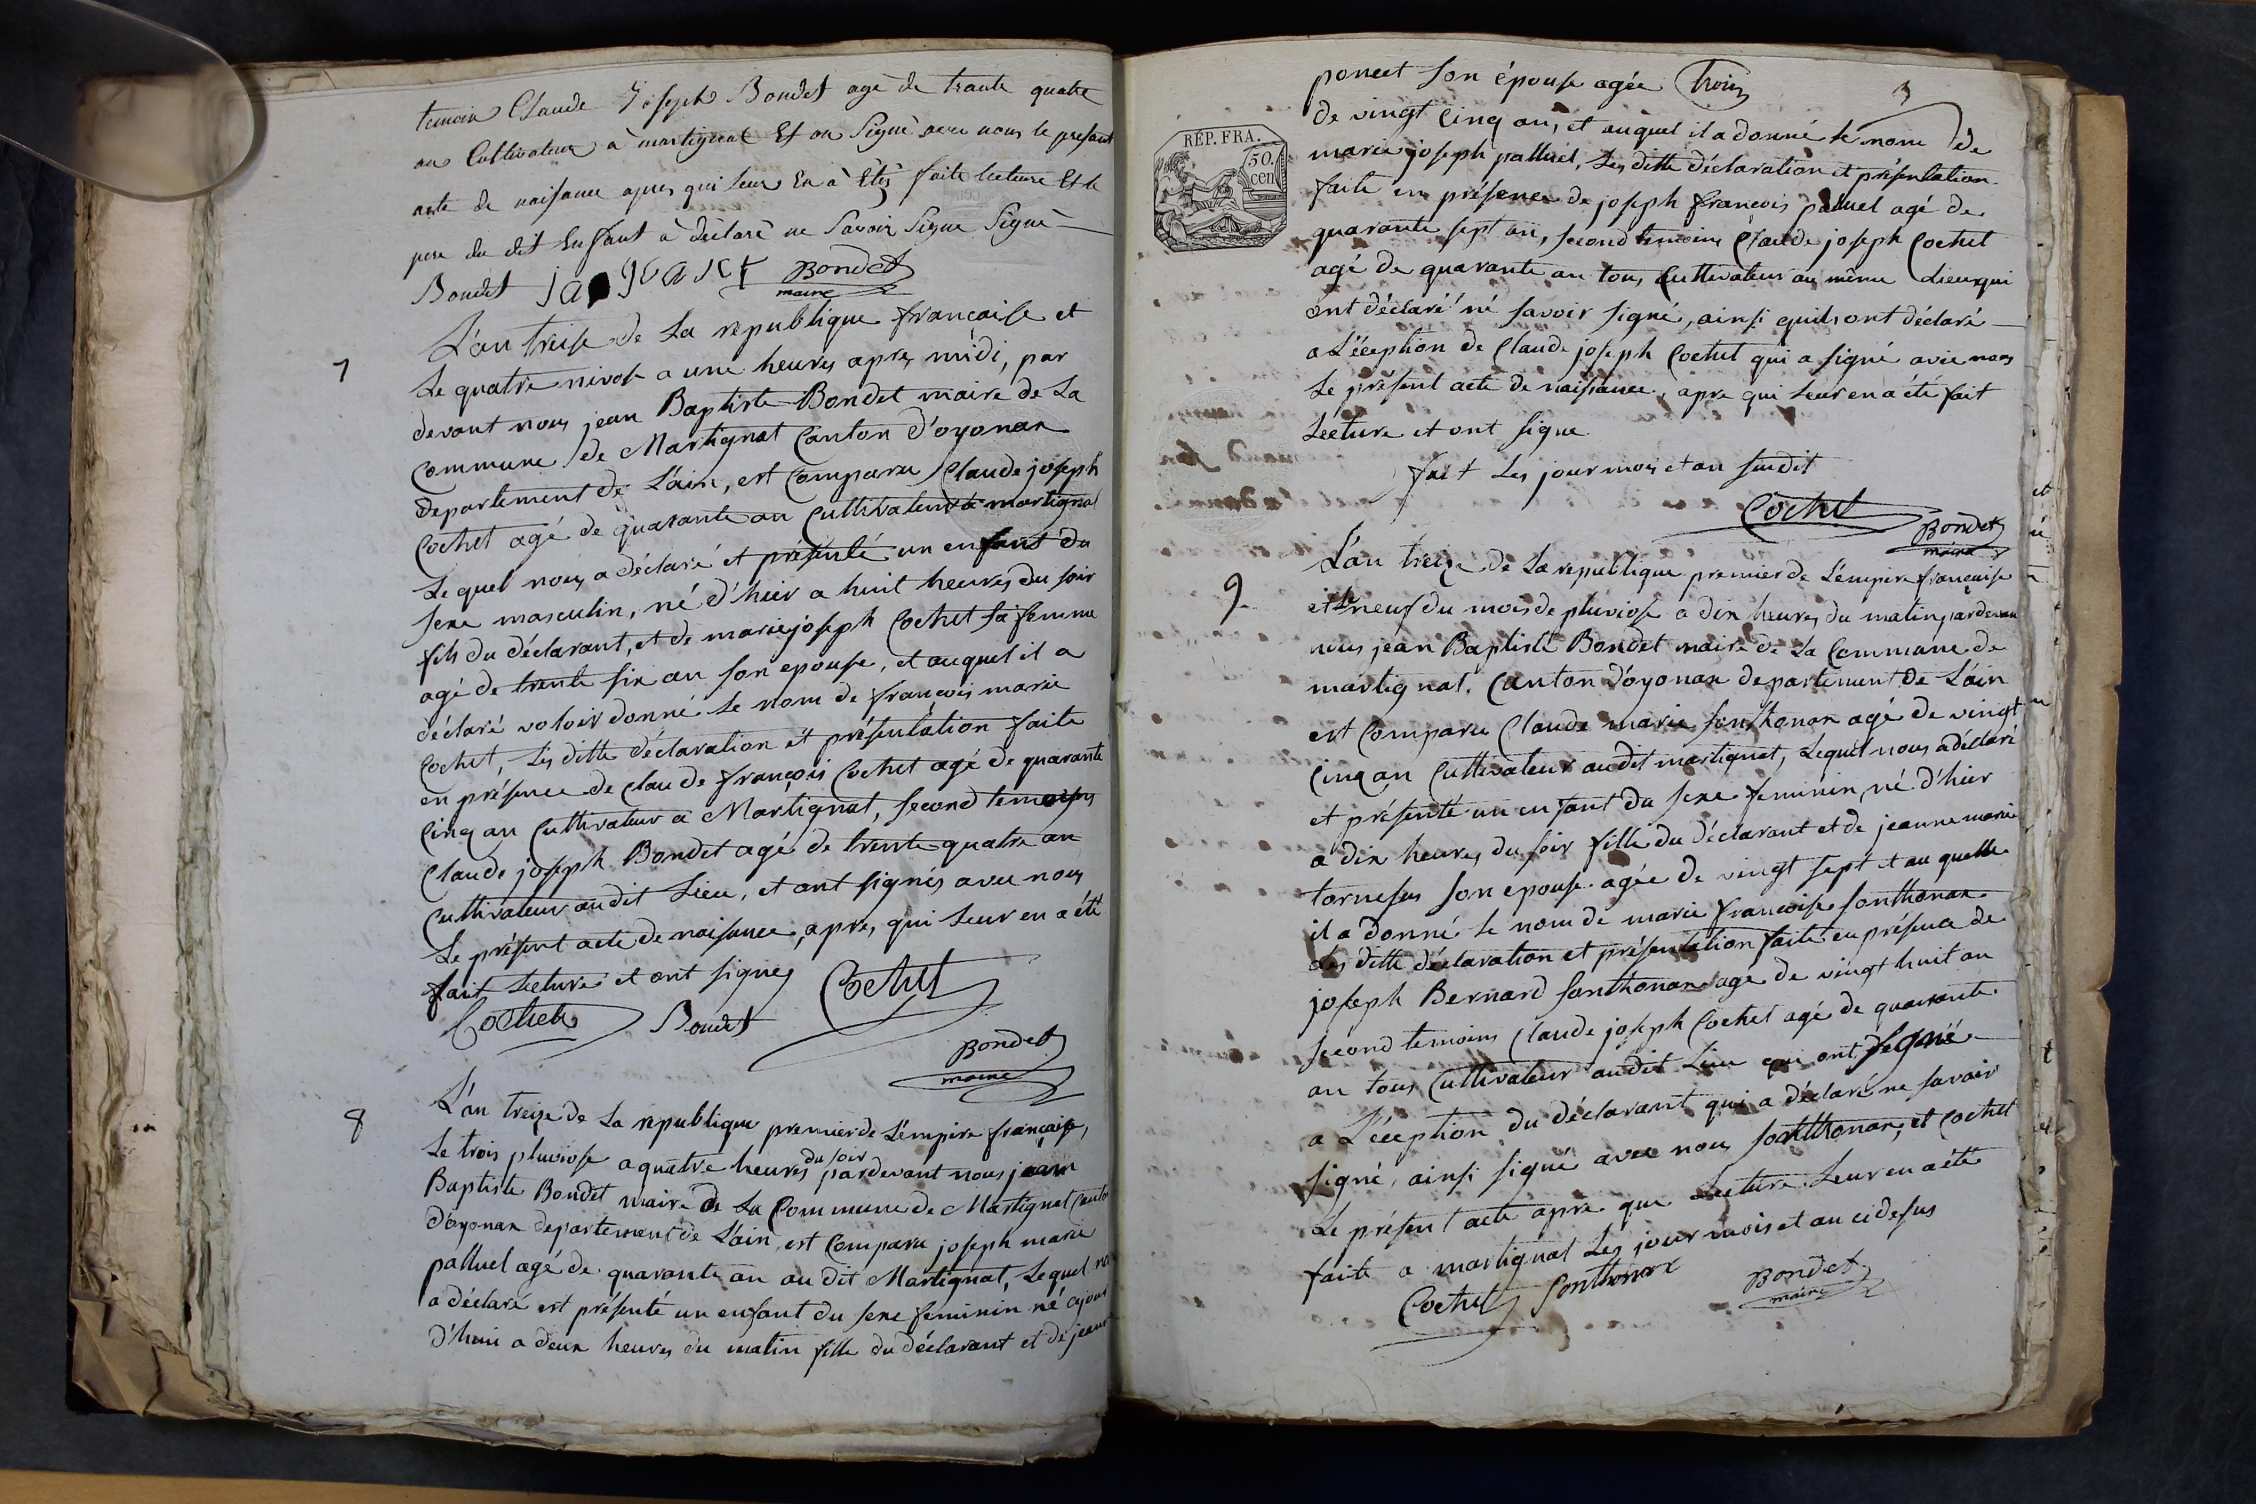 temoin Claude Joseph Bondet age de trante quatre
an Cultivateur à martignat Et on Signè avec nous le presant
acte de naisance apres qui leur En à Etès faite lecture Et le
pere du dit Enfant à dèclarè ne Savoir Signe Signè
Bondet jacquart Bondet
maire
7
L'an treise de La republique françaisse et
Le quatre nivose a une heures apres midi, par
devant nous jean Baptiste Bondet maire de La
Commune de Martignat Canton d'oyonax
departement de L'ain, est Comparu Claude joseph
Cochet agé de quarante an Cultivateur a martignat
Le quel nous a déclaré et présenté un enfant du
sexe masculin, né d'hier a huit heures du soir
fils du déclarant, et de marie joseph Cochet sa femme
agé de trente six an son epouse, et auquel il a
déclaré voloir donné Le nom de françois marie
Cochet, Les ditte déclaration et présentation faite
en présence de Claude françois Cochet agé de quarante
Cinq an Cultivateur a Martignat, second temoins
Claude joseph Bondet agé de trente quatre an
Cultivateur audit Lieu, et ont signés avec nous
Le présent acte de naisance, apres, qui Leur en a été
fait Lecture et ont signes
Cochet Bondet Cochet
Bondet
maire
8
L'an treize de La republique premier de L'empire française,
Le trois pluviose a quatre heures du soir pardevant nous jean
Baptiste Bondet maire de La Commune de Martignat Canton
d'oyonax departement de L'ain, est Comparu joseph marie
palluel agé de quarante an au dit Martignat, Lequel
a déclaré est présenté un enfant du sexe feminin né
d'hui a deux heures du matin fille du déclarant et de jeanne
3
poncet son épouse agée trois
RÉP. FRA.
50.
cen
de vingt Cinq an, et auquel il a donné le nom de
marie joseph palluel, Les ditte déclaration et présentation
faite en présence de joseph françois palluel agé de
quarante sept an, second temoins Claude joseph Cochet
agé de quarante an tous Cultivateur au même Lieux qui
ont déclaré né savoir signé, ainsi quils ont déclaré
a L'éception de Claude joseph Cochet qui a signé avec nous
Le présent acte de naissance, apre qui Leur en a été fait
Lecture et ont signe
fait Les jour mois et an susdit
Cochet
Bondet
maire
9
L'an treize de La republique premier de L'empire française
et le neuf du mois de pluviose a dix heures du matin pardevant
nous jean Baptiste Bondet maire de La Commune de
martignat, Canton d'oyonax departement de L'ain
est Comparu Claude marie sonthonax agé de vingt
Cinq an Cultivateur audit martignat, Lequel nous a déclaré
et présenté un enfant du sexe feminin, né d'hier
a dix heures du soir fille du déclarant et de jeanne marie
tornesus son epouse agée de vingt sept et au quelle
il a donné Le nom de marie françoise sonthonax
Les ditte déclaration et présentation faite en présence de
joseph Bernard sonthonax agé de vingt huit an
second temoins Claude joseph Cochet agé de quarante
an tous Cultivateur audit Lieu qui ont segné
a L'éception du déclarant qui a déclaré ne savoir
signé, ainsi signé avec nous sonthonax, et Cochet
Le présent acte apre que Lecture Leur en a été
faite a martignat Les jour mois et an cidesus
Cochet sonthonax Bondet
maire